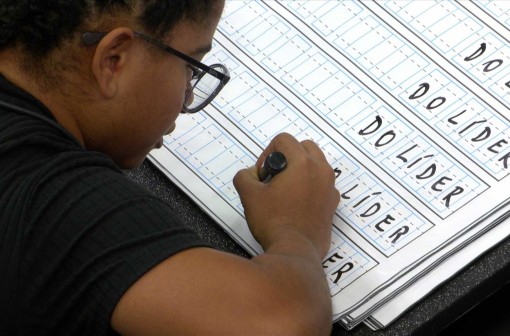 DO L
DO LÍDER
DO LÍDER
LÍDER
ER